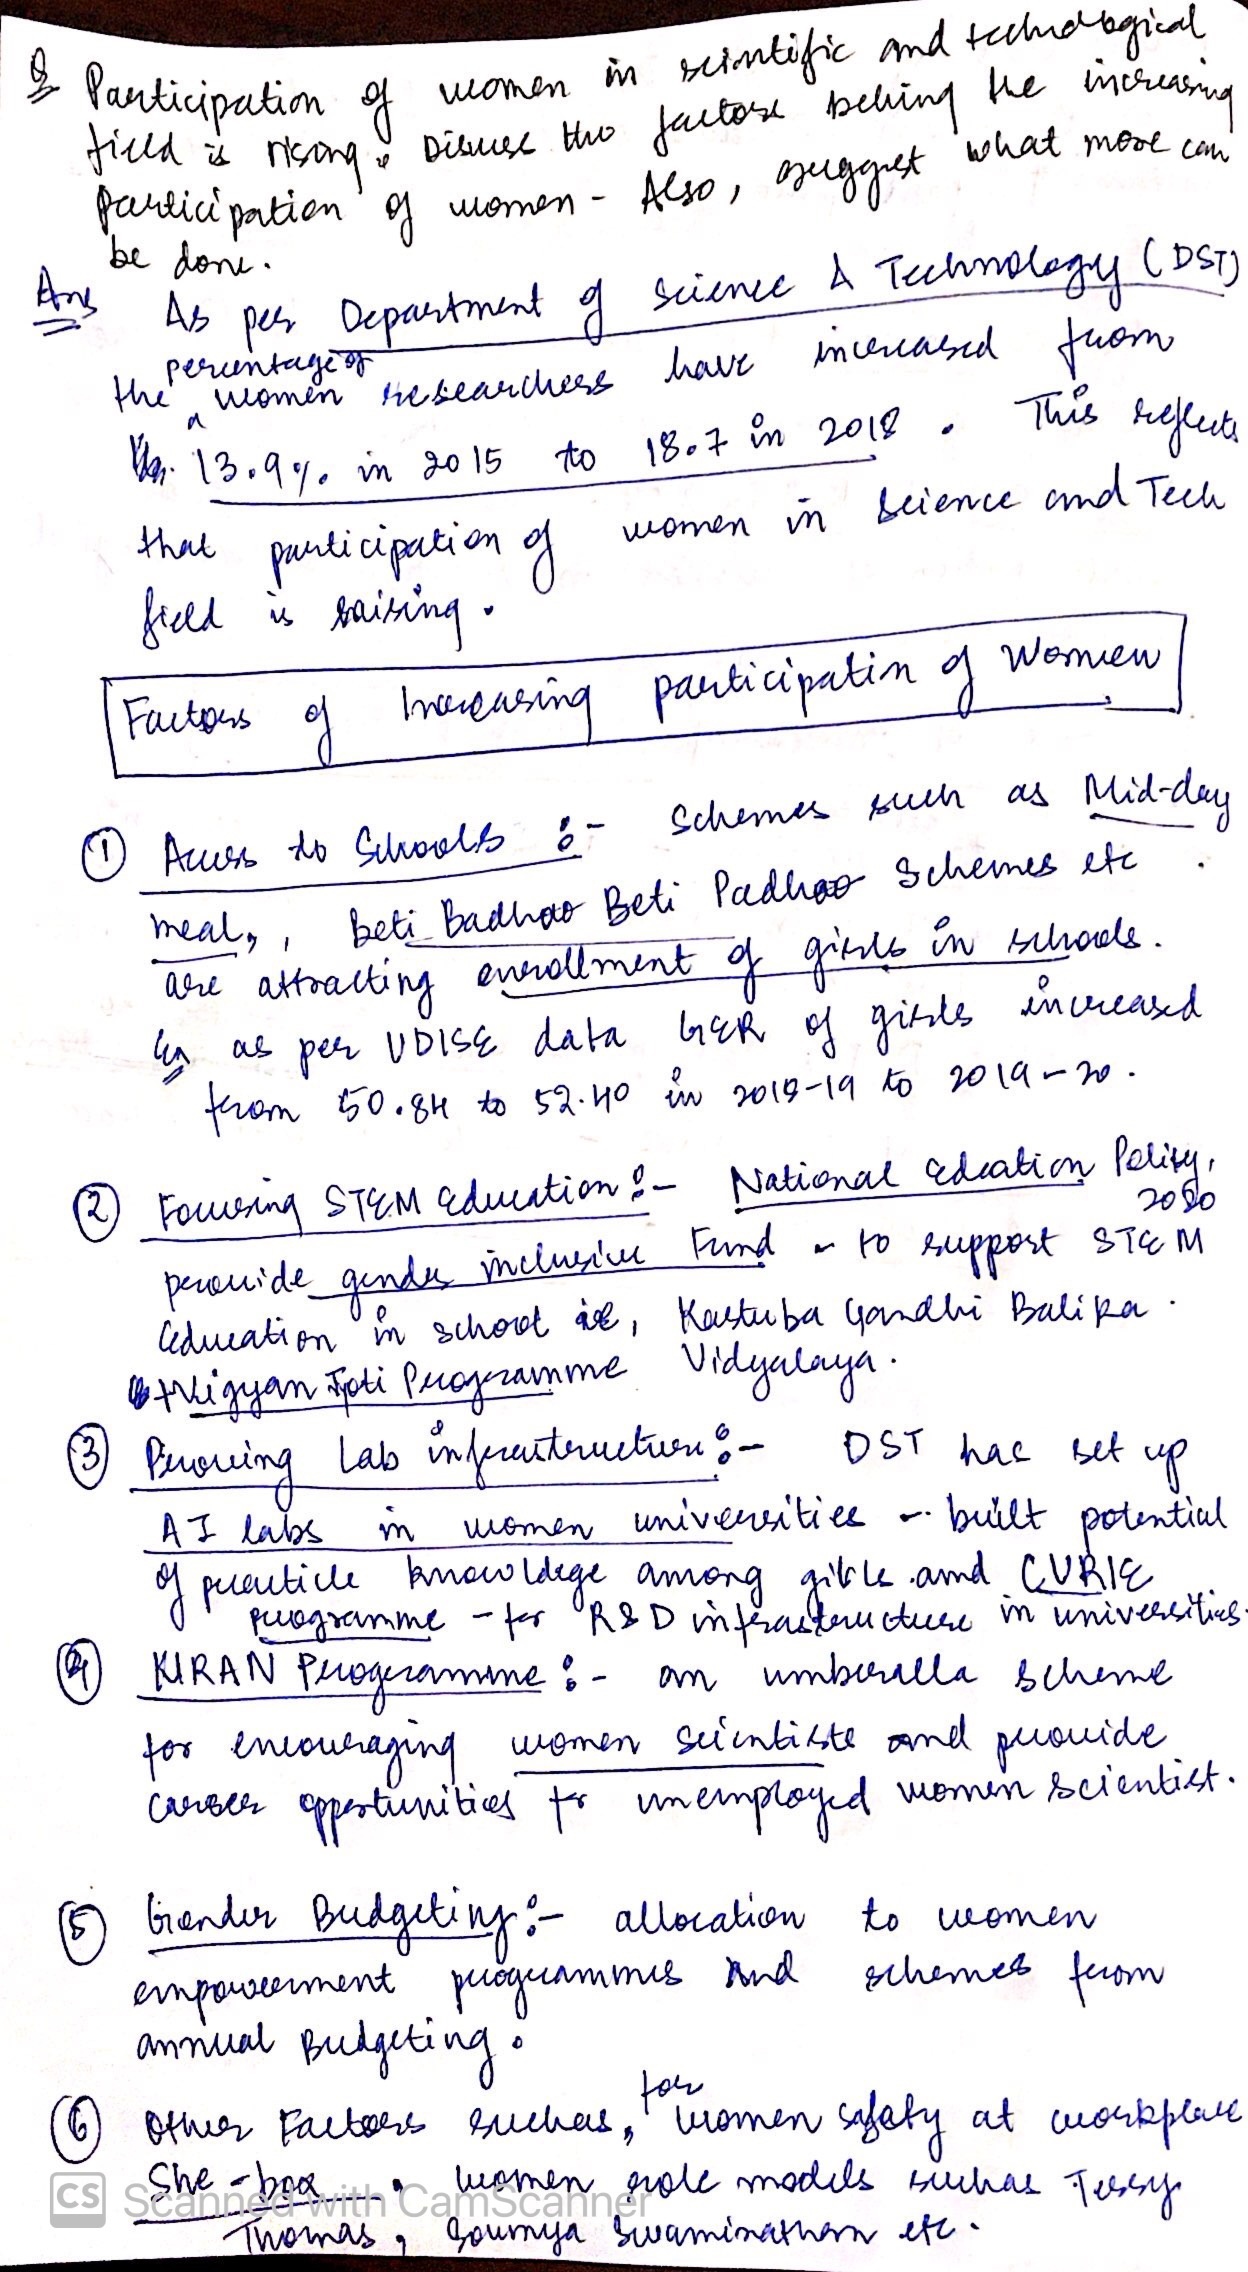 Q Participation of women in scientific and technological
field is rising. Discuss the factors behing the increasing
participation of women - Also, suggest what more can
be done.
Ans As per Department of Science & Technology (DST)
the percentage of women researchers have increased from
13.9% in 2015 to 18.7 in 2018. This reflects
that participation of women in Science and Tech
field is raising.
Factors of Increasing participation of Women
① Access to Schools :- Schemes such as Mid-day
meal, Beti Badhao Beti Padhao Schemes etc
are attracting enrollment of girls in schools.
Eg as per UDISE data GER of girls increased
from 50.84 to 52.40 in 2018-19 to 2019-20.
② Focusing STEM Education :- National Edcation Policy, 2020
provide gender inclusive Fund - to support STEM
Education in school ie, Kastuba Gandhi Balika
+ Vigyan Jyoti Programme Vidyalaya.
③ Proving Lab infrastructure :- DST has set up
AI labs in women universities - built potential
of practicle knowldege among girls and CURIE
programme - for R&D infrastructure in universities.
④ KIRAN Programme :- an umberalla scheme
for encouraging women scientists and provide
career opportunities for unemployed women scientist.
⑤ Gender Budgeting :- allocation to women
empowerment programmes and schemes from
annual Budgeting.
⑥ Other Factors suchas, for women safety at workplace
She-box, women role models suchas Tessy
Thomas, Soumya Swaminathan etc.
CS Scanned with CamScanner